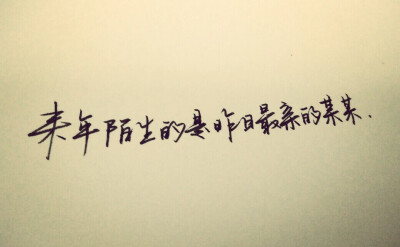 来年陌生的是昨日最亲的某某.